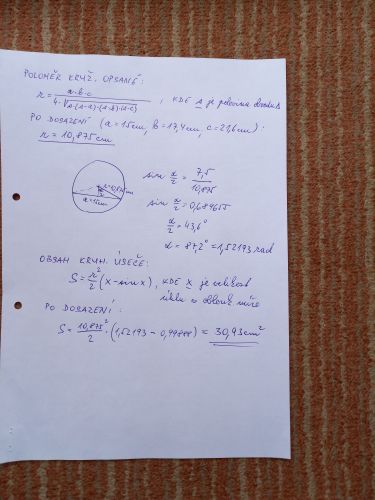 POLOMĚR KRUŽ. OPSANÉ:
r = a·b·c / 4·√s·(s-a)·(s-b)·(s-c) , KDE s je polovina obvodu
PO DOSAZENÍ (a = 15cm, b = 17,4cm, c = 21,6cm):
r = 10,875cm
r = 10,875cm
a = 15cm
sin α/2 = 7,5/10,875
sin α/2 = 0,689655
α/2 = 43,6°
α = 87,2° = 1,52193 rad
OBSAH KRUH. ÚSEČE:
S = r²/2 (x - sin x), KDE x je velikost
úhlu v oblouk. míře
PO DOSAZENÍ:
S = 10,875²/2 · (1,52193 - 0,99888) = 30,93cm²